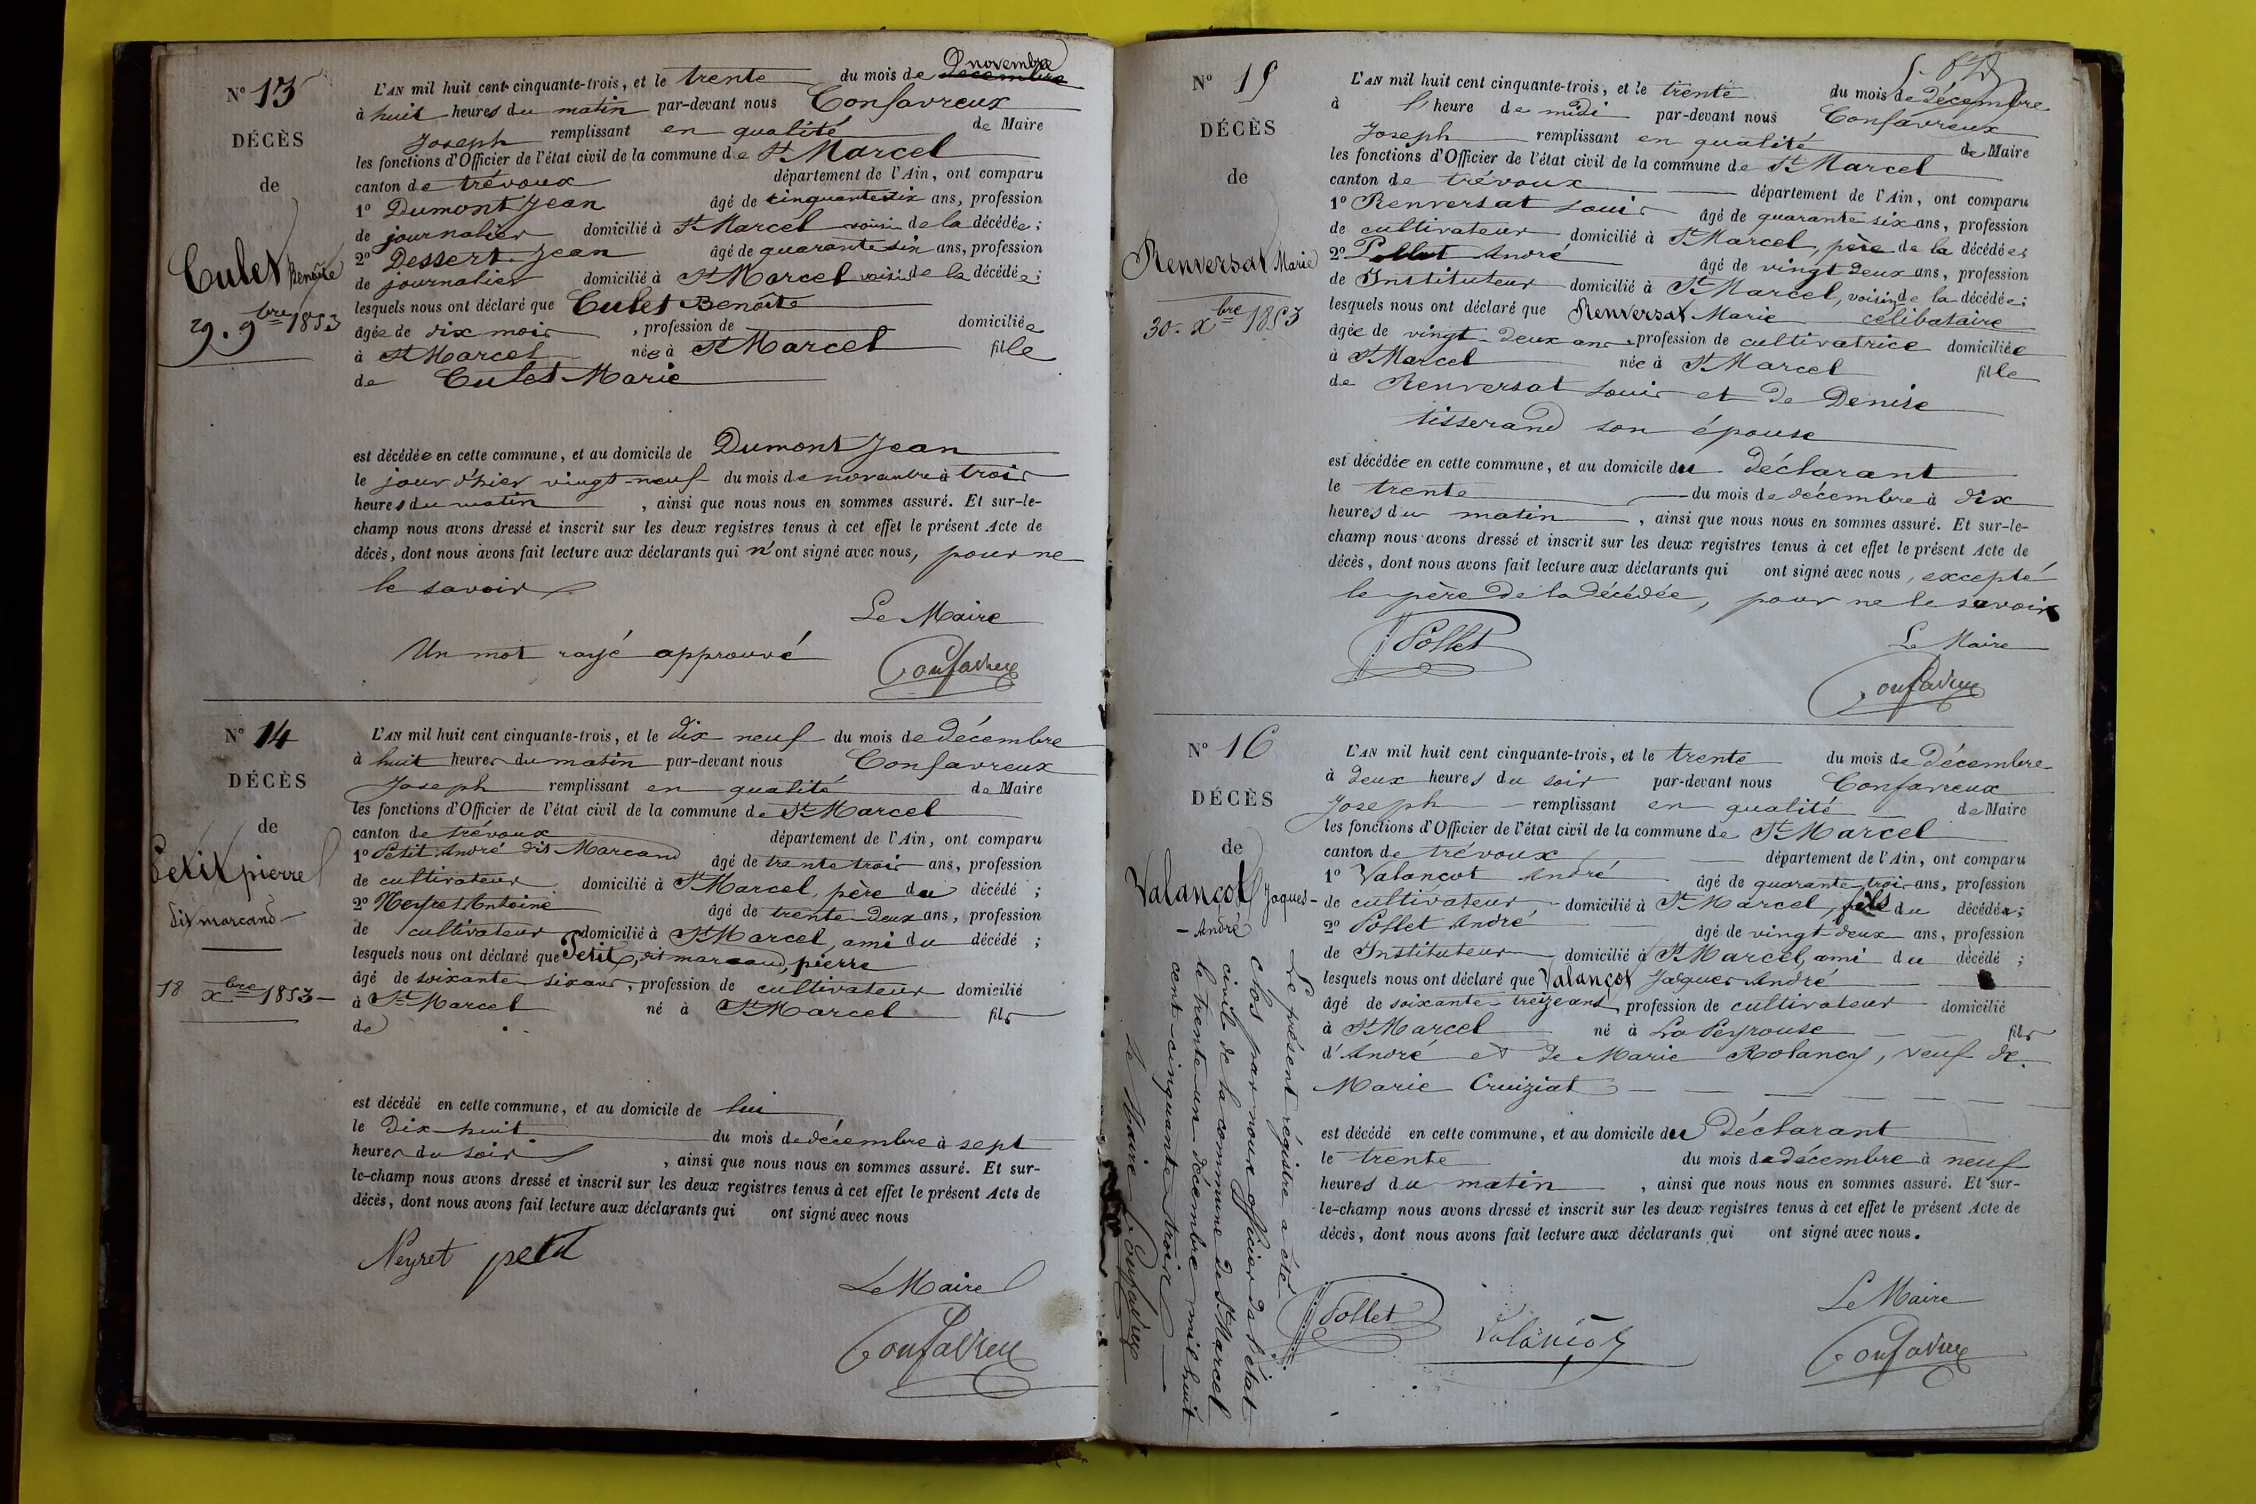 N° 13
DÉCÈS
de
Culet Benoîte
29. 9bre 1853
novembre
L'AN mil huit cent cinquante-trois, et le trente du mois de décembre
à huit heures du matin par-devant nous Confavreux
Joseph remplissant en qualité de Maire
les fonctions d'Officier de l'état civil de la commune de St Marcel
canton de trévoux département de l'Ain, ont comparu
1° Dumont Jean âgé de cinquante six ans, profession
de journalier domicilié à St Marcel voisin de la décédée;
2° Dessert Jean âgé de quarante six ans, profession
de journalier domicilié à St Marcel voisin de la décédée;
lesquels nous ont déclaré que Culet Benoîte
âgée de dix mois, profession de domiciliée
à St Marcel née à St Marcel fille
de Culet Marie
est décédée en cette commune, et au domicile de Dumont Jean
le jour d'hier vingt-neuf du mois de novembre à trois
heures du matin, ainsi que nous nous en sommes assuré. Et sur-le-
champ nous avons dressé et inscrit sur les deux registres tenus à cet effet le présent Acte de
décès, dont nous avons fait lecture aux déclarants qui n'ont signé avec nous, pour ne
le savoir
Le Maire
Un mot rayé approuvé
Confavreux
N° 14
DÉCÈS
de
Petit pierre
dit marcand
18 xbre 1853
L'AN mil huit cent cinquante-trois, et le dix neuf du mois de décembre
à huit heures du matin par-devant nous Confavreux
Joseph remplissant en qualité de Maire
les fonctions d'Officier de l'état civil de la commune de St Marcel
canton de trévoux département de l'Ain, ont comparu
1° Petit André dit Marcand âgé de trente trois ans, profession
de cultivateur domicilié à St Marcel, père du décédé;
2° Neyret Antoine âgé de trente-deux ans, profession
de cultivateur domicilié à St Marcel, ami du décédé;
lesquels nous ont déclaré que Petit, dit marcand, pierre
âgé de soixante six ans, profession de cultivateur domicilié
à St Marcel né à St Marcel fils
de
est décédé en cette commune, et au domicile de lui
le dix-huit du mois de décembre à sept
heures du soir, ainsi que nous nous en sommes assuré. Et sur-
le-champ nous avons dressé et inscrit sur les deux registres tenus à cet effet le présent Acte de
décès, dont nous avons fait lecture aux déclarants qui ont signé avec nous
Neyret petit
Le Maire
Confavreux
N° 15
DÉCÈS
de
Renversat Marie
30. xbre 1853
L'AN mil huit cent cinquante-trois, et le trente du mois de décembre
à l'heure de midi par-devant nous Confavreux
Joseph remplissant en qualité de Maire
les fonctions d'Officier de l'état civil de la commune de St Marcel
canton de trévoux département de l'Ain, ont comparu
1° Renversat Louis âgé de quarante six ans, profession
de cultivateur domicilié à St Marcel, père de la décédée;
2° Pollet André âgé de vingt deux ans, profession
de Instituteur domicilié à St Marcel, voisin de la décédée;
lesquels nous ont déclaré que Renversat Marie célibataire
âgée de vingt-deux ans profession de cultivatrice domiciliée
à St Marcel née à St Marcel fille
de Renversat Louis et de Denise
tisserand son épouse
est décédée en cette commune, et au domicile du déclarant
le trente du mois de décembre à dix
heures du matin, ainsi que nous nous en sommes assuré. Et sur-le-
champ nous avons dressé et inscrit sur les deux registres tenus à cet effet le présent Acte de
décès, dont nous avons fait lecture aux déclarants qui ont signé avec nous, excepté
le père de la décédée, pour ne le savoir
Pollet
Le Maire
Confavreux
N° 16
DÉCÈS
de
Valançot Jaques-
-André
L'AN mil huit cent cinquante-trois, et le trente du mois de décembre
à deux heures du soir par-devant nous Confavreux
Joseph remplissant en qualité de Maire
les fonctions d'Officier de l'état civil de la commune de St Marcel
canton de trévoux département de l'Ain, ont comparu
1° Valançot André âgé de quarante trois ans, profession
de cultivateur domicilié à St Marcel, fils du décédé;
2° Pollet André âgé de vingt-deux ans, profession
de Instituteur domicilié à St Marcel, ami du décédé;
lesquels nous ont déclaré que Valançot Jacques André
âgé de soixante-treize ans, profession de cultivateur domicilié
à St Marcel né à La Peyrouse fils
d'André et de Marie Rolancy, veuf de
Marie Cruiziat
est décédé en cette commune, et au domicile du Déclarant
le trente du mois de décembre à neuf
heures du matin, ainsi que nous nous en sommes assuré. Et sur-
le-champ nous avons dressé et inscrit sur les deux registres tenus à cet effet le présent Acte de
décès, dont nous avons fait lecture aux déclarants qui ont signé avec nous.
Pollet
Valançot
Le Maire
Confavreux
Le présent régistre a été
clos par nous officier de l'état
civil de la commune de St Marcel
le trente-un décembre mil huit
cent-cinquante-trois
le Maire Confavreux